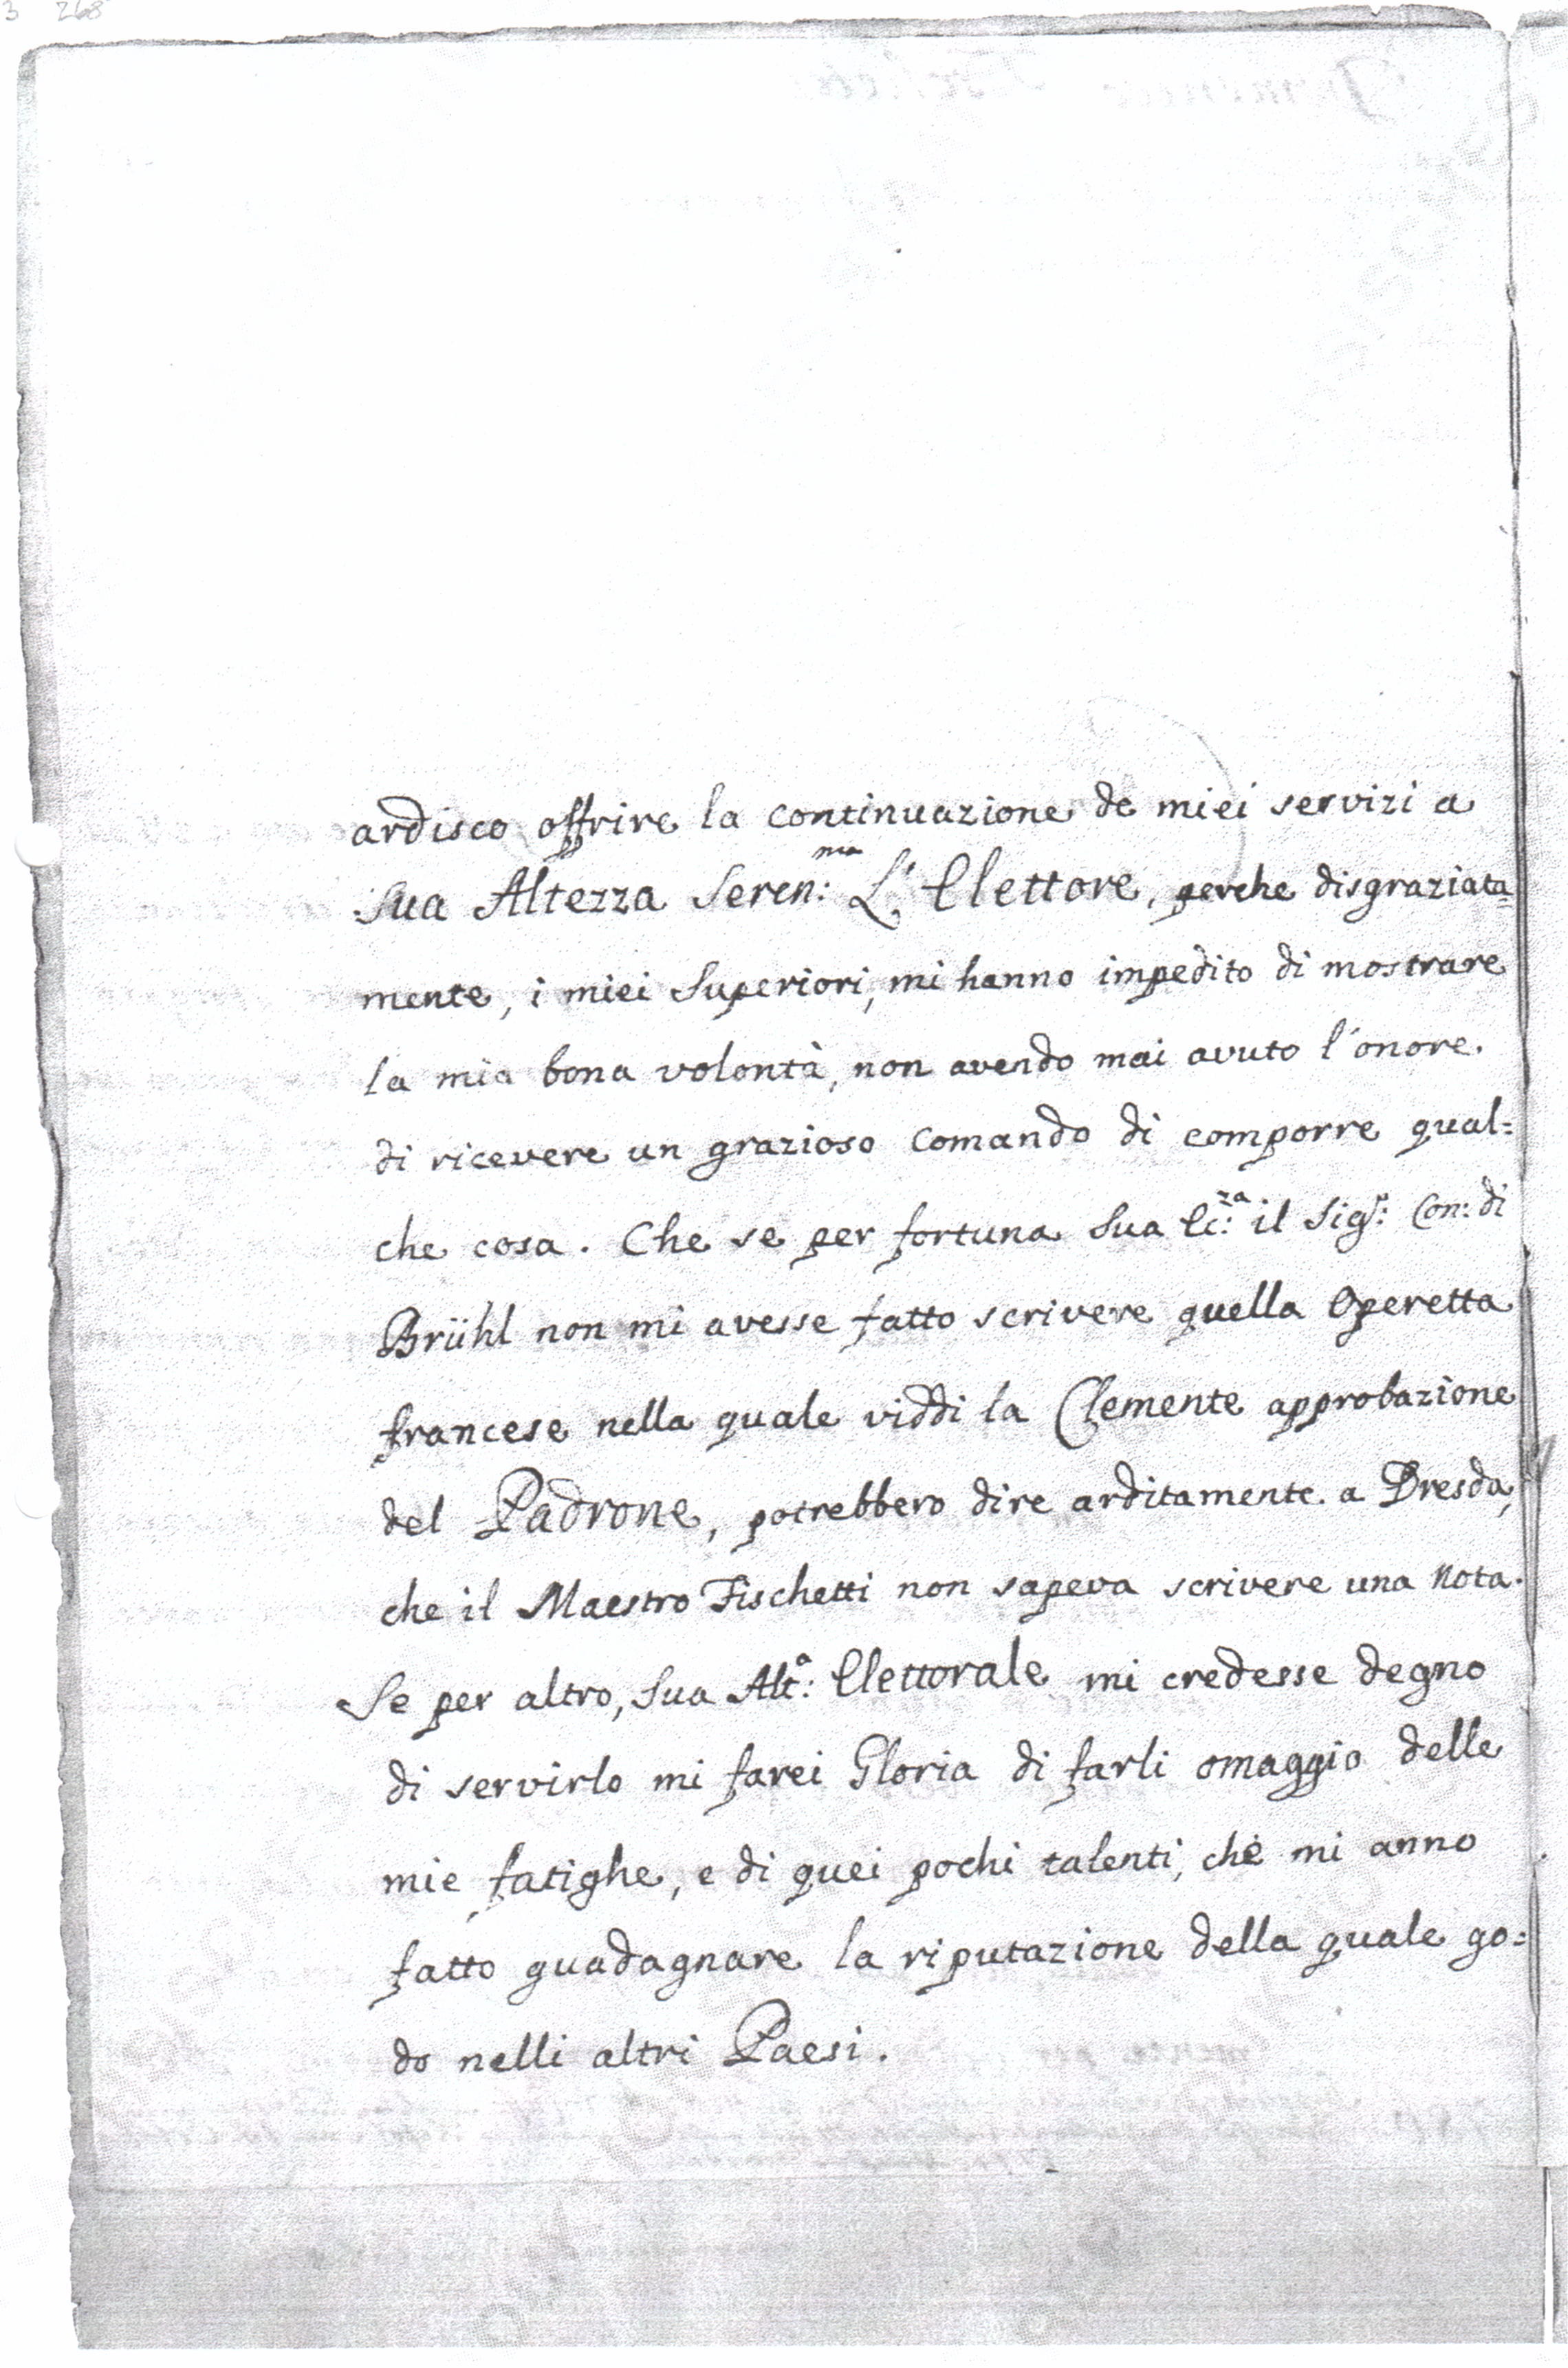 3 268
ardisco offrire la continuazione de miei servizi a
Sua Altezza Seren:ma L'Elettore, perche disgraziata=
mente, i miei Superiori, mi hanno impedito di mostrare
la mia bona volontà, non avendo mai avuto l'onore
di ricevere un grazioso comando di comporre qual=
che cosa. Che se per fortuna Sua Ec:za il Sigr: Con: di
Brühl non mi avesse fatto scrivere quella Operetta
francese nella quale viddi la Clemente approbazione
del Padrone, potrebbero dire arditamente a Dresda,
che il Maestro Fischetti non sapeva scrivere una nota.
Se per altro, Sua Alta: Elettorale mi credesse degno
di servirlo mi farei Gloria di farli omaggio delle
mie fatighe, e di quei pochi talenti, che mi anno
fatto guadagnare la riputazione della quale go=
do nelli altri Paesi.